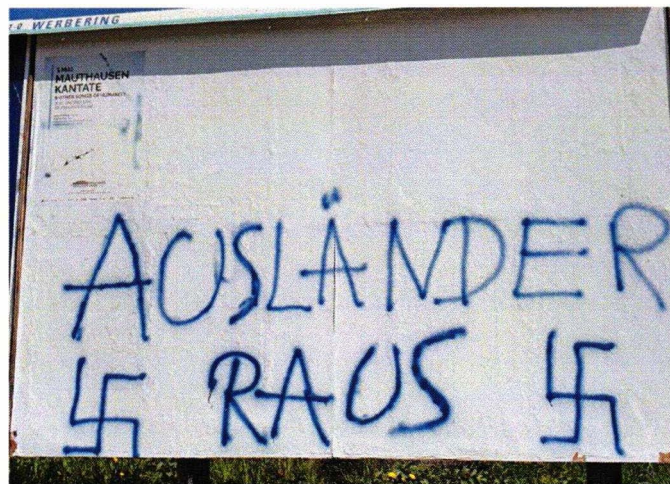 WERBERING
MAUTHAUSEN
KANTATE
AUSLÄNDER
RAUS